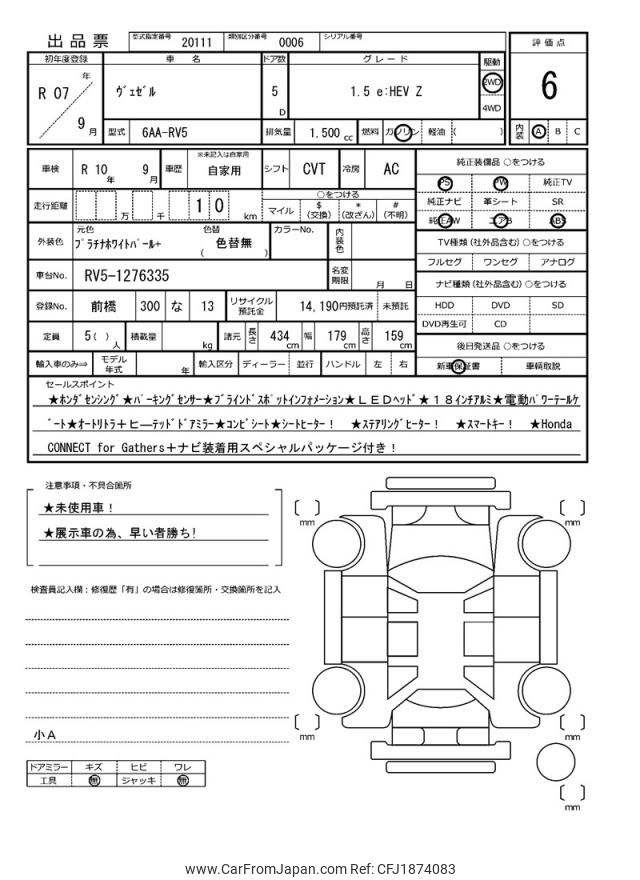 出品票 型式指定番号 20111 類別区分番号 0006 シリアル番号
評価点
6
初年度登録 車名 ドア数 グレード 駆動
R 07 年 9 月
ヴェゼル 5 D 1.5 e:HEV Z 2WD 4WD
型式 6AA-RV5 排気量 1.500 cc 燃料 ガソリン 軽油 ( )
内装 A B C
車検 R 10 年 9 月 車歴 ※未記入は自家用 自家用 シフト CVT 冷房 AC
走行距離 万 千 1 0 km
○をつける
マイル $ (交換) * (改ざん) # (不明)
外装色 元色 プラチナホワイトパール+ 色替 色替無 ( ) カラーNo. 内装色
車台No. RV5-1276335 名変期限 月 日
登録No. 前橋 300 な 13 リサイクル預託金 14,190円預託済 未預託
定員 5 ( ) 人 積載量 kg 諸元 長さ 434 cm 幅 179 cm 高さ 159 cm
輸入車のみ⇒ モデル年式 年 輸入区分 ディーラー 並行 ハンドル 左 右
純正装備品 ○をつける
PS PW 純正TV
純正ナビ 革シート SR
純正AW エアB ABS
TV種類 (社外品含む) ○をつける
フルセグ ワンセグ アナログ
ナビ種類 (社外品含む) ○をつける
HDD DVD SD
DVD再生可 CD
後日発送品 ○をつける
新車保証書 車輌取説
セールスポイント
★ホンダセンシング★パーキングセンサー★ブラインドスポットインフォメーション★LEDヘッド★18インチアルミ★電動パワーテールゲ
ート★オートリトラ+ヒーテッドドアミラー★コンビシート★シートヒーター! ★ステアリングヒーター! ★スマートキー! ★Honda
CONNECT for Gathers+ナビ装着用スペシャルパッケージ付き!
注意事項・不具合箇所
★未使用車!
★展示車の為、早い者勝ち!
検査員記入欄:修復歴「有」の場合は修復箇所・交換箇所を記入
小A
ドアミラー キズ ヒビ ワレ
工具 無 ジャッキ 無
[ ] mm
[ ] mm
[ ] mm
[ ] mm
[ ] mm
www.CarFromJapan.com Ref: CFJ1874083